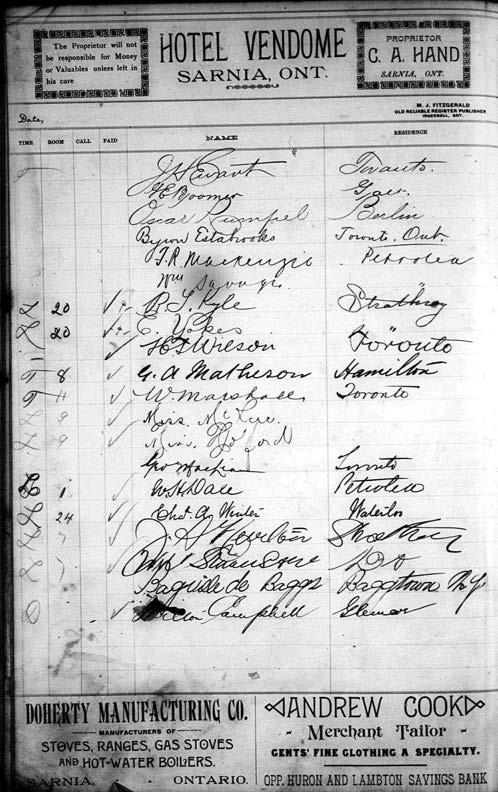 The Proprietor will not
be responsible for Money
or Valuables unless left in
his care
HOTEL VENDOME
SARNIA, ONT.
PROPRIETOR
C. A. HAND
SARNIA, ONT.
M. J. FITZGERALD
OLD RELIABLE REGISTER PUBLISHER
INGERSOLL, ONT.
Date,
TIME ROOM CALL PAID NAME RESIDENCE
Toronto
G E Boomer
Oscar Rumpel Berlin
Byron Estabrooks Toronto. Ont.
F. R. Mackenzie Petrolea
Wm Savage
20 R. J. Kyle Strathroy
20 C. Yokes "
H F Wilson Toronto
T 8 G. A Matheson Hamilton
T 4 W. Marshall Toronto
9 Miss
9
Geo Toronto
1 W H Dale Petrolea
24 Chas. A Winter Waterloo
J. Strathroy
Do
Baguide de Baggs Baggtown N. J.
Campbell
DOHERTY MANUFACTURING CO.
MANUFACTURERS OF
STOVES, RANGES, GAS STOVES
AND HOT-WATER BOILERS.
SARNIA, - - ONTARIO.
ANDREW COOK
- Merchant Tailor -
GENTS' FINE CLOTHING A SPECIALTY.
OPP. HURON AND LAMBTON SAVINGS BANK